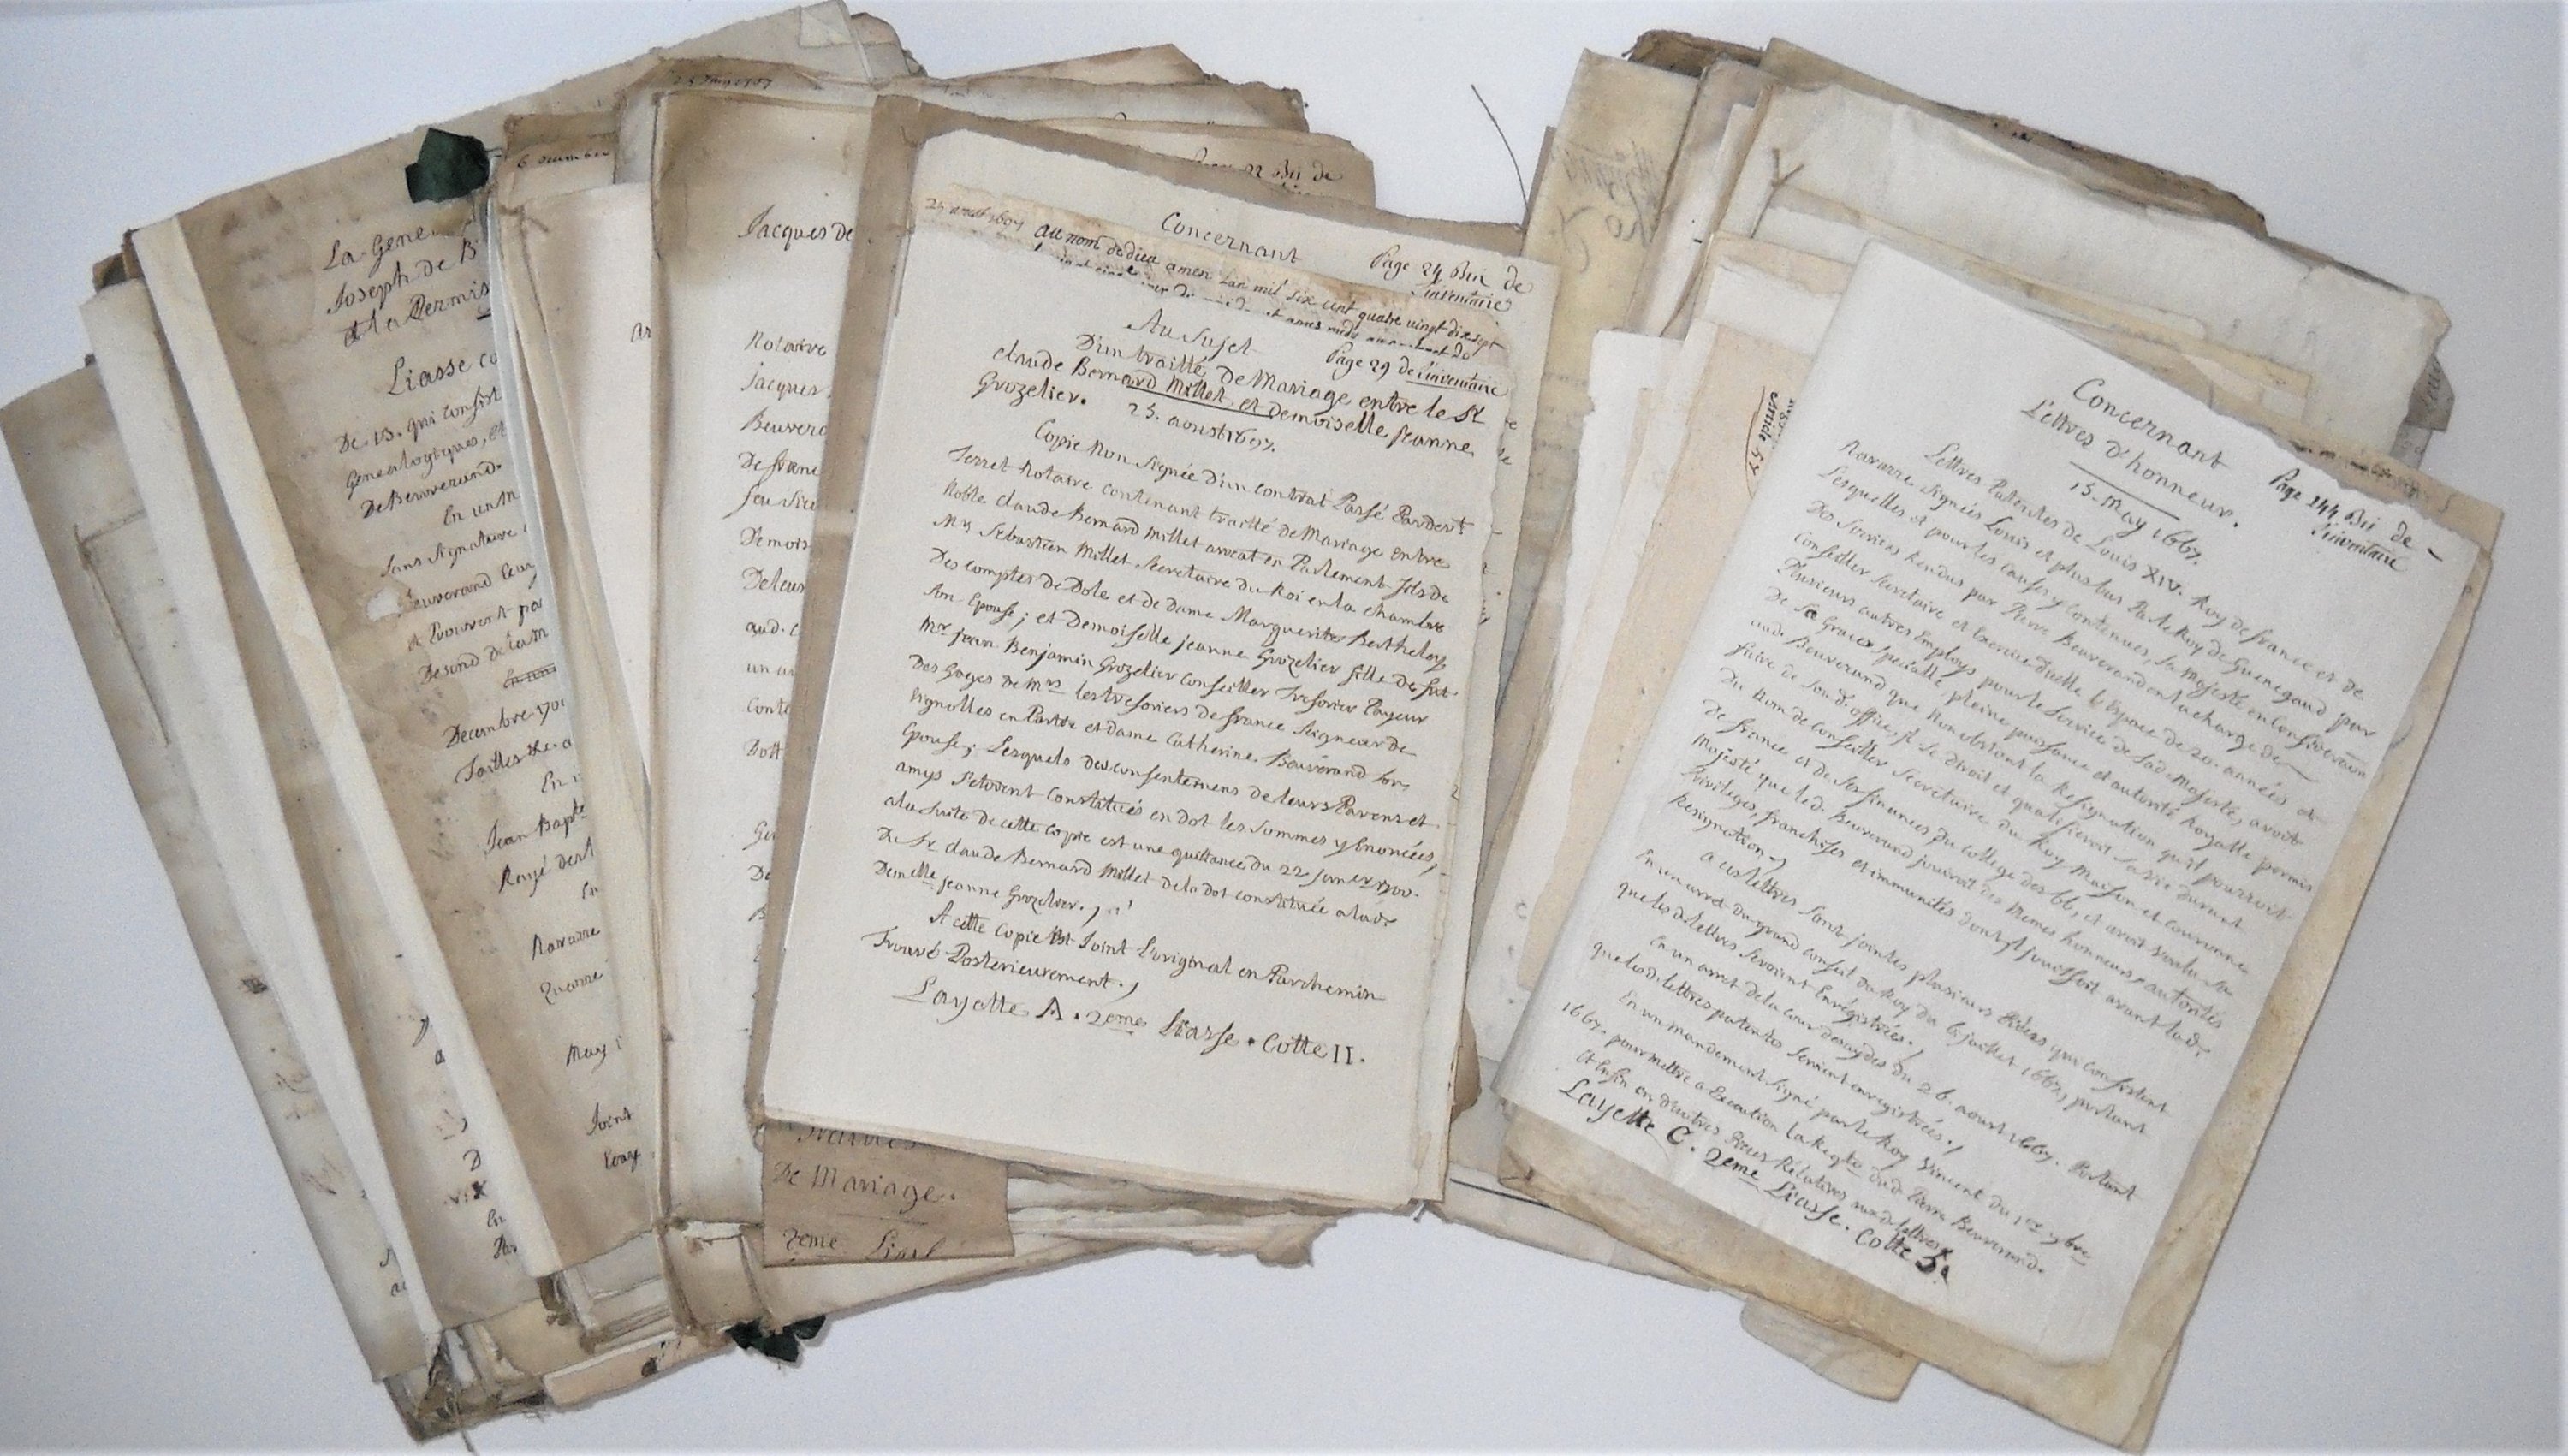 La Gene
Joseph de B
et la Permis
Liasse co
De 13. qui consist
Genealogiques, et
De Beuverand.
En un m
sans signature
Beuverand leur
et Prouvent par
Decembre 170
Tailles &c. a
En
Jean Bapt
Rayé dex
en
Navarre
Quarre
May
Joint
Coay
6 decembre
Jacques de
Notaire
jacques
Beuvera
De franc
feu sieu
Demois
De leur
aud. c
un au
Conte
Dott
22 Bis de
25 aoust 1697
Concernant
Page 24 Bis de
l'inventaire
au nom de dieu amen Lan mil six cent quatre vingt dix sept
Au Sujet
Page 29 de l'inventaire
D'un traitté De Mariage entre le Sr
Claude Bernard Millet, et demoiselle jeanne
Grozelier. 25. aoust 1697.
Copie Non signée d'un contrat Passé Pardevt
Terret Notaire contenant traitté de Mariage entre
Noble claude Bernard Millet avocat en Parlement fils de
Mr Sebastien Millet Secretaire du Roi en la chambre
Des comptes de Dole et de Dame Marguerite Bertheley
son Epouse; et Demoiselle jeanne Grozelier fille de feu
Mr jean Benjamin Grozelier conseiller Tresorier Payeur
Des Gages de Mrs les tresoriers de france Seigneur de
Vignolles en Partie et dame Catherine Beuverand son
Epouse; Lesquels des consentemens de leurs Parens et
amys Setoient Constitués en dot les sommes y Enoncées,
ala suite de cette copie est une quittance du 22 janer 1700.
De Sr claude Bernard Millet de la dot constituée a lad.
Demelle jeanne Grozelier.
A cette Copie Est Joint l'original en Parchemin
Trouvé Posterieurement.
Layette A. 2eme Liasse. Cotte II.
De Mariage.
2eme Liass
article 52
Concernant
Lettres d'honneur.
Page 144 Bis de
l'inventaire
15. May 1667.
Lettres Patentes de Louis XIV. Roy de france et de
Navarre signées Louis et plus bas Par le Roy de Guenegaud par
Lesquelles et pour les causes y contenues, sa Majesté en Consideration
Des Services Rendus par Pierre Beuverand en la charge de
Conseiller Secretaire et Exercice d'icelle l'espace de 20. années et
Plusieurs autres Employs pour le Service de Sad. Majesté, avoit
De Sa Grace speciale pleine puissance et autorité Royalle permis
aud. Beuverand que Nonobstant la Resignation qu'il pourroit
faire de son d. office, il se diroit et qualifieroit sa vie durant
Du Nom de Conseiller Secretaire du Roy Maison et couronne
De france et de ses finances Du College des 66, et avoit voulu sa
Majesté que led. Beuverand jouiroit des Memes honneurs autorités
Privileges, franchises et immunités dont il jouissoit avant lad.
Resignation.
A ces lettres sont jointes plusieurs Pieces qui consistent
En un arret du grand conseil du Roy du 6 juillet 1667, portant
que les d. lettres seroient Enregistrées.
En un arret de la cour des aydes du 26. aoust 1667. Portant
que les d. lettres patentes seroient enregistrées.
En un mandement signé par le Roy Vincent du 1er 7bre
1667. pour mettre a Execution la Reqte dud. Pierre Beuverand.
Et Enfin en d'autres Pieces Relatives aux d. lettres
Layette C. 2eme Liasse. Cotte 5.